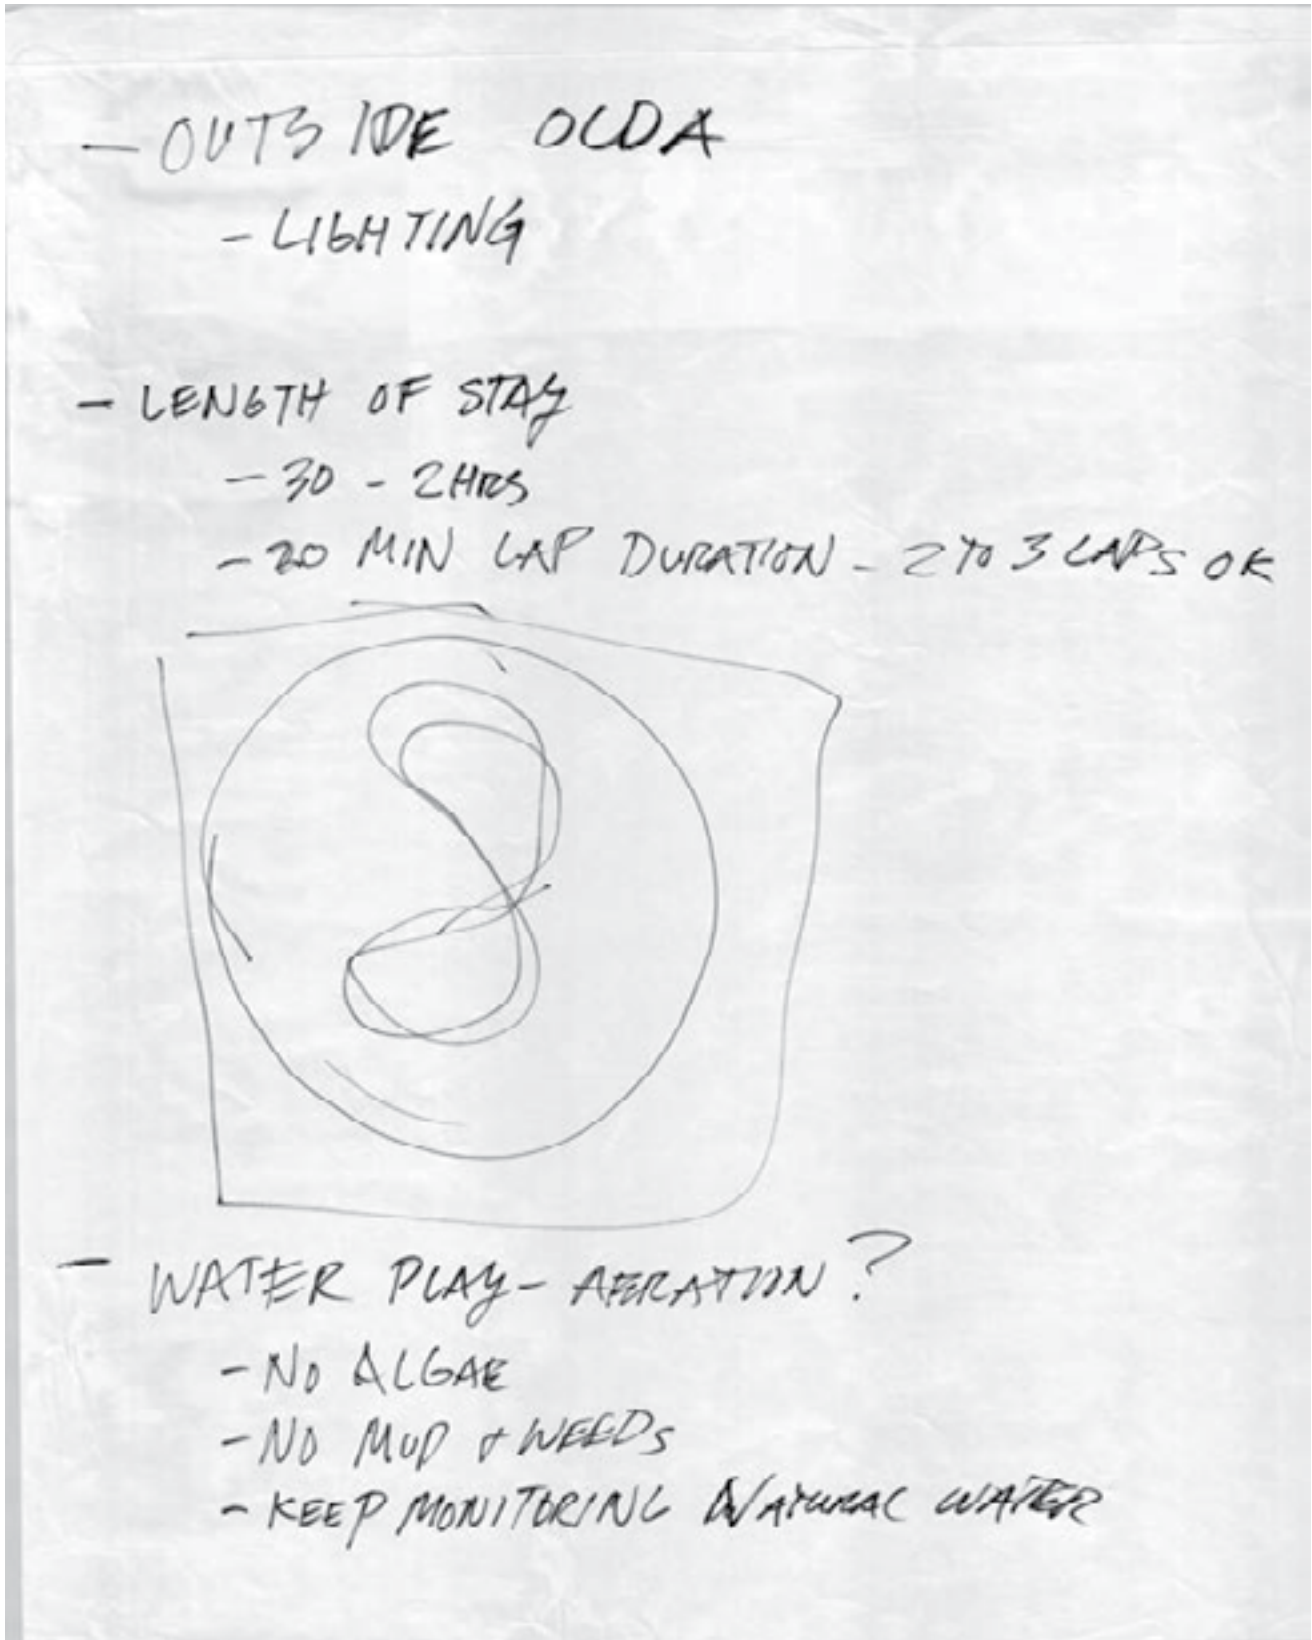 - OUTSIDE OLDA
- LIGHTING
- LENGTH OF STAY
- 30 - 2HRS
- 20 MIN LAP DURATION - 2 TO 3 LAPS OK
- WATER PLAY - AERATION?
- NO ALGAE
- NO MUD & WEEDS
- KEEP MONITORING NATURAL WATER